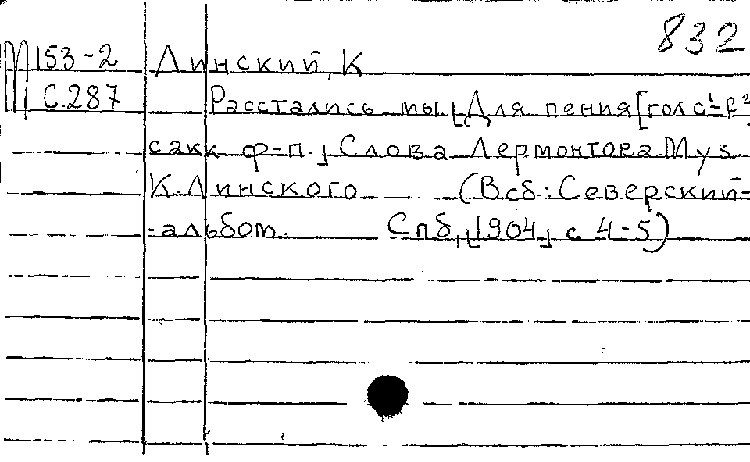 832
М 153-2 Линский, К
С.287 Расстались мы [Для пения [гол c¹-f²
сакк ф-п.] Слова Лермонтова Муз
К.Линского (В сб: Северский
-альбом. Спб, [1904] с 4-5)